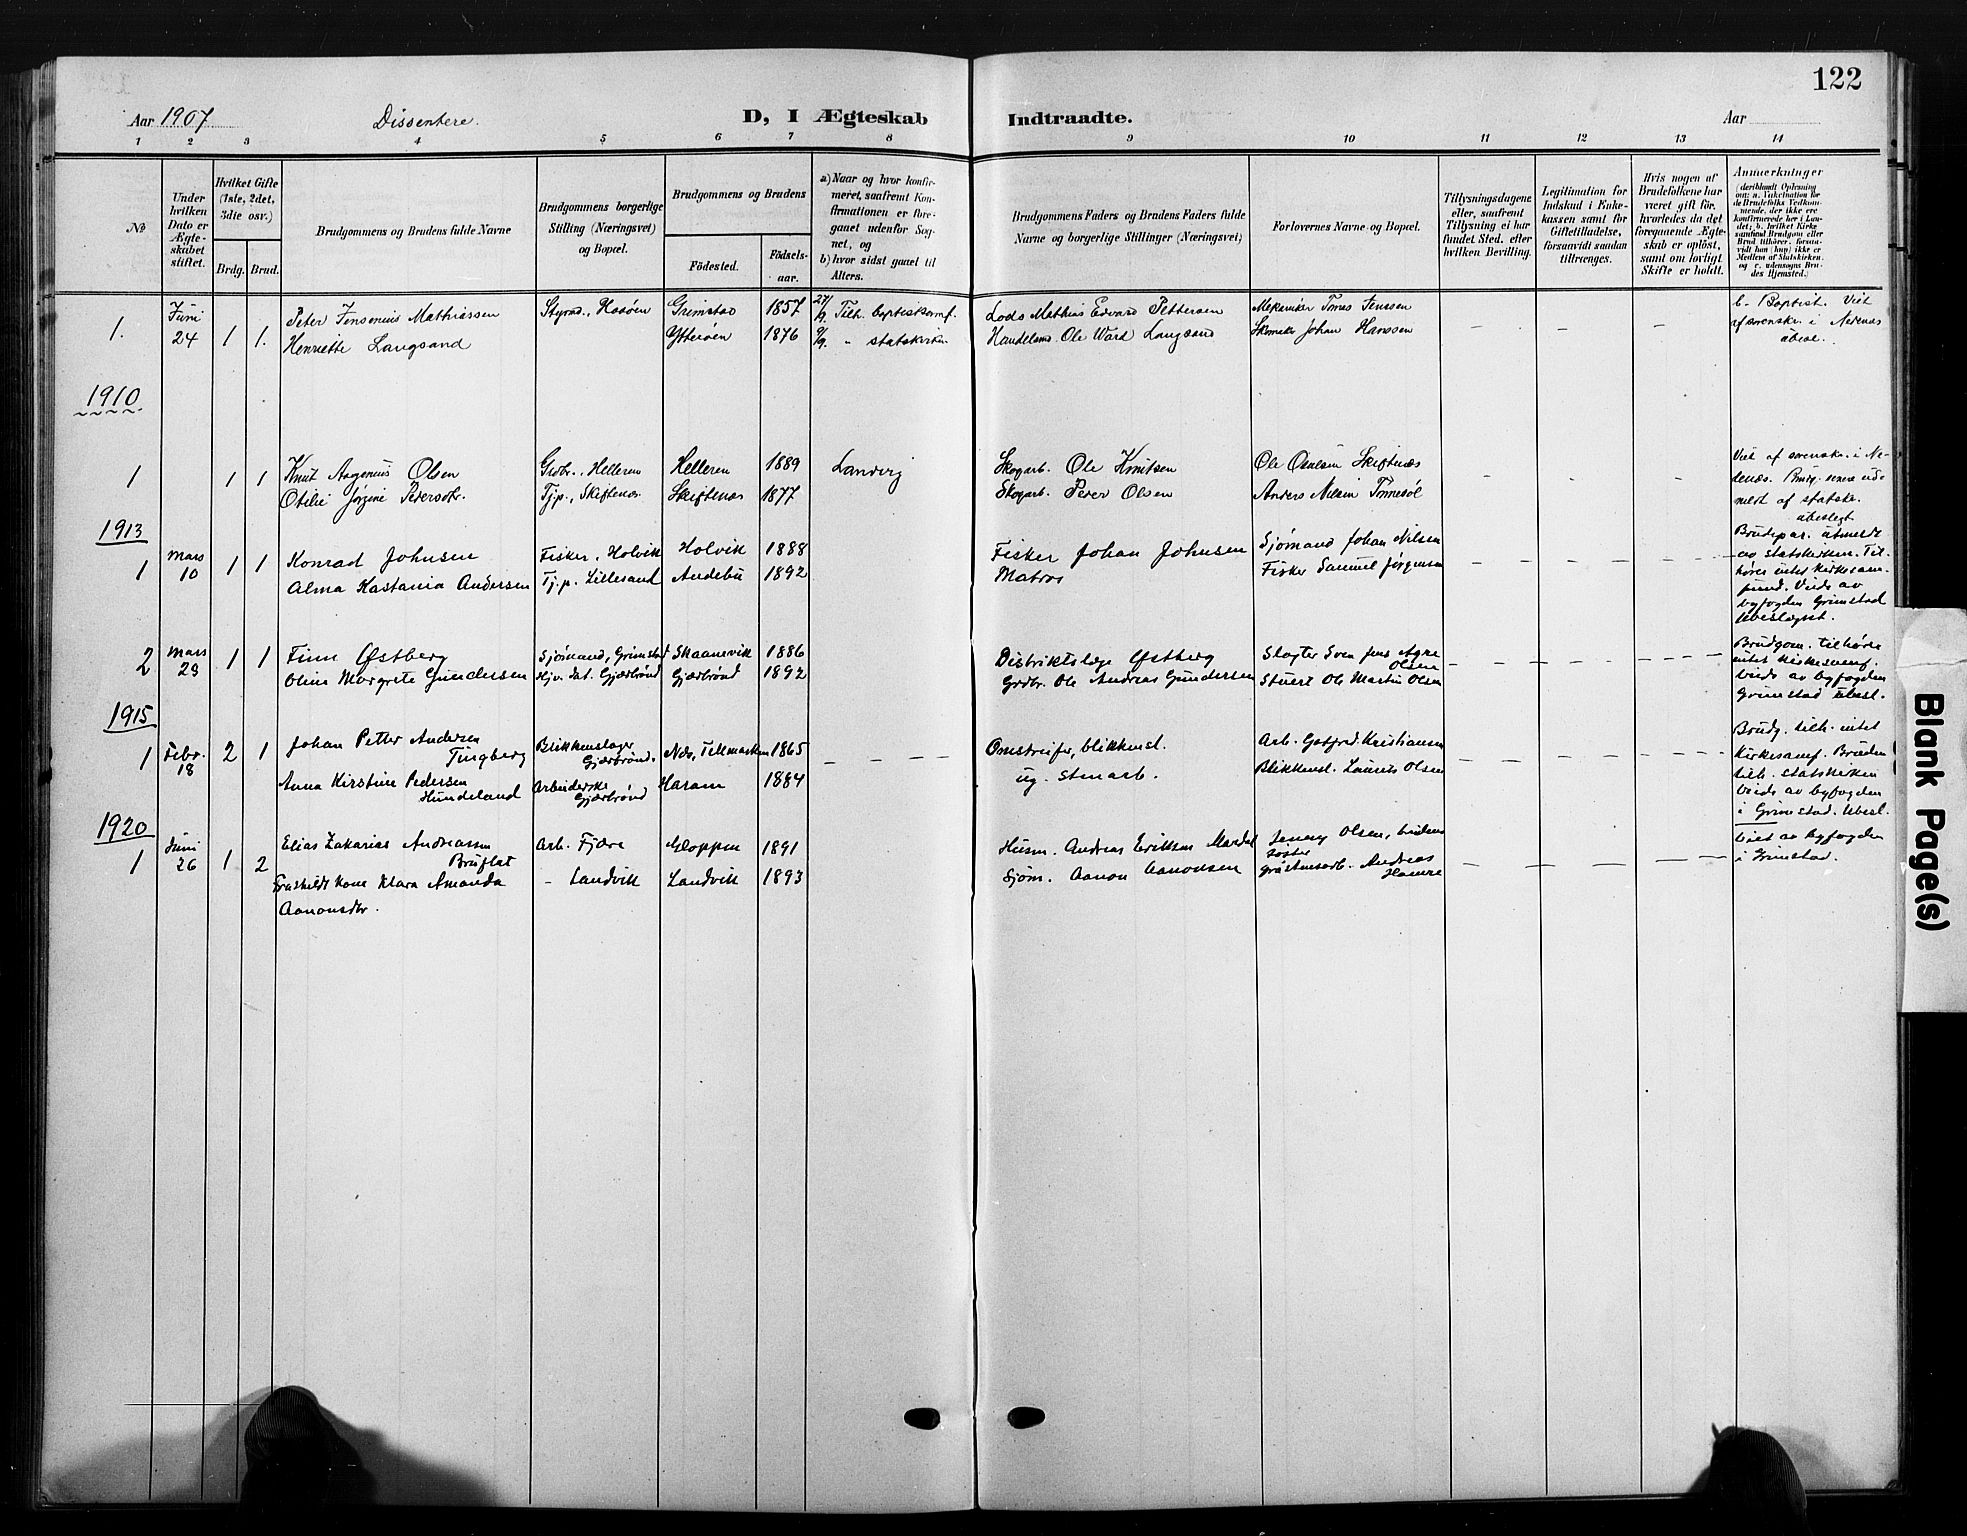 122
Aar 1907
Dissentere.
D, I Ægteskab Indtraadte.
Aar
1 2 3 4 5 6 7 8 9 10 11 12 13 14
№
Under hvilken Dato er Ægteskabet stiftet.
Hvilket Gifte (1ste, 2det, 3die osv.)
Brdg. Brud.
Brudgommens og Brudens fulde Navne
Brudgommens borgerlige Stilling (Næringsvei) og Bopæl.
Brudgommens og Brudens
Födested.
Födselsaar.
a) Naar og hvor konfirmeret, saafremt Konfirmationen er foregaaet udenfor Sognet, og
b) hvor sidst gaaet til Alters.
Brudgommens Faders og Brudens Faders fulde Navne og borgerlige Stillinger (Næringsvei)
Forlovernes Navne og Bopæl.
Tillysningsdagene eller, saafremt Tillysning ei har fundet Sted, efter hvilken Bevilling.
Legitimation for Indskud i Enkekassen samt for Giftetilladelse, forsaavidt saadan tiltrænges.
Hvis nogen af Brudefolkene har været gift för, hvorledes da det foregaaende Ægteskab er oplöst, samt om lovligt Skifte er holdt.
Anmerkninger
(deriblandt Oplysning om: a. Vakcination for de Brudefolks Vedkommende, der ikke ere konfirmerede her i Landet; b. hvilket Kirkesamfund Brudgom eller Brud tilhörer, forsaavidt han (hun) ikke er Medlem af Statskirken, og c. udensogns Brudes Hjemsted.
1. Juni 24 1 1.
Peter Jensenius Mathiassen Styrm., Hasöen Grimstad 1857 27/9. Tilh. baptistsamf.
Henriette Langsand Ytterøen 1876 " statskirken
Lods Mathias Edvard Pettersen
Handelsm. Ole Ward Langsand
Mekaniker Tønnes Jenssen
Skomaker Johan Hanssen
b. Baptist. Viet af sorenskr. i Nedenæs
1910
1 1 1
Knut Aagenius Olsen Grdbr., Helleren Helleren 1889 Landvig
Otilie Jørgine Pedersdtr. Tj.p., Skiftenes Skiftenæs 1877
Skogarb. Ole Knutsen
Skogarb. Peder Olsen
Ole Skiftenæs
Anders Nilsen Tønnesöl
Viet af sorenskr. i Nedenæs. Brudg. ud-
meldt af statsk.
ubeslegt
1913
1 Mars 10 1 1
Konrad Johnsen Fisker, Holvik Holvik 1888
Alma Kastania Andersen Tj.p. Lillesand Andebu 1892
Fisker Johan Johnsen
Matros
Sjømand Johan Nilsen
Fisker Samuel Jørgensen
Brudepar. utmeldt
av statskirken. Til-
hører intet kirkesam-
fund. Viede av
byfogden Grimstad
Ubeslægtet.
2 Mars 28 1 1
Finn Østberg Sjømand, Grimstad Skaanevik 1886
Oline Margrete Gundersen Hjv. dat. Gjærbrønd Gjærbrønd 1892
Distriktslæge Østberg
Grdbr. Ole Andreas Gundersen
Slagter Sven Jens Agne Olsen
Stuert Ole Martin Olsen
Brudgom. tilhører
intet kirkesamf.
viede av byfogden
Grimstad Ubesl.
1915
1 Febr. 18 2 1
Johan Petter Andersen Tingberg Blikkenslager Gjærbrønd. Nes, Tellmarken 1865
Anna Kirstine Pedersen Hundeland Arbeiderske Gjærbrønd Haram 1884
Omstreifer, blikkensl.
ug. stenarb.
Arb. Gotfred Kristiansen
Blikkensl. Laurits Olsen
Brudg. tilh. intet
Kirkesamf. Bruden
tilh. statskirken
viede av byfogden
i Grimstad. Ubesl.
1920
1 Juni 26 1 2
Elias Zakarias Andreassen Bruflat Arb. Fjære Gloppen 1891
Fraskildt kone Klara Amanda Aanonsdtr. - Landvik Landvik 1893
Husm. Andreas Eriksen Mardal
Sjøm. Aanon Aanonsen
Jenny Olsen, brudens søster
gråstensarb. Andreas
Viet av byfogden
i Grimstad.
Blank Page(s)